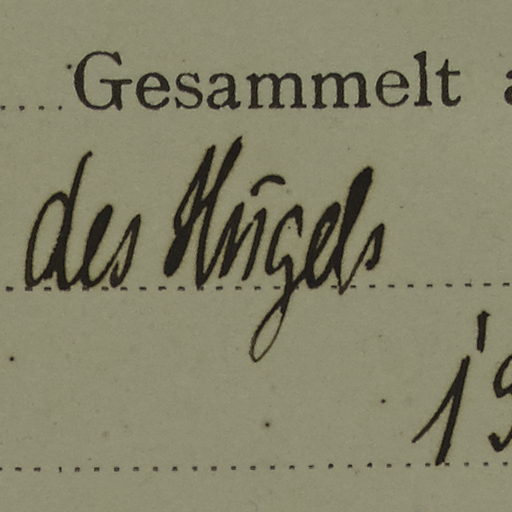 Gesammelt
des Hügels